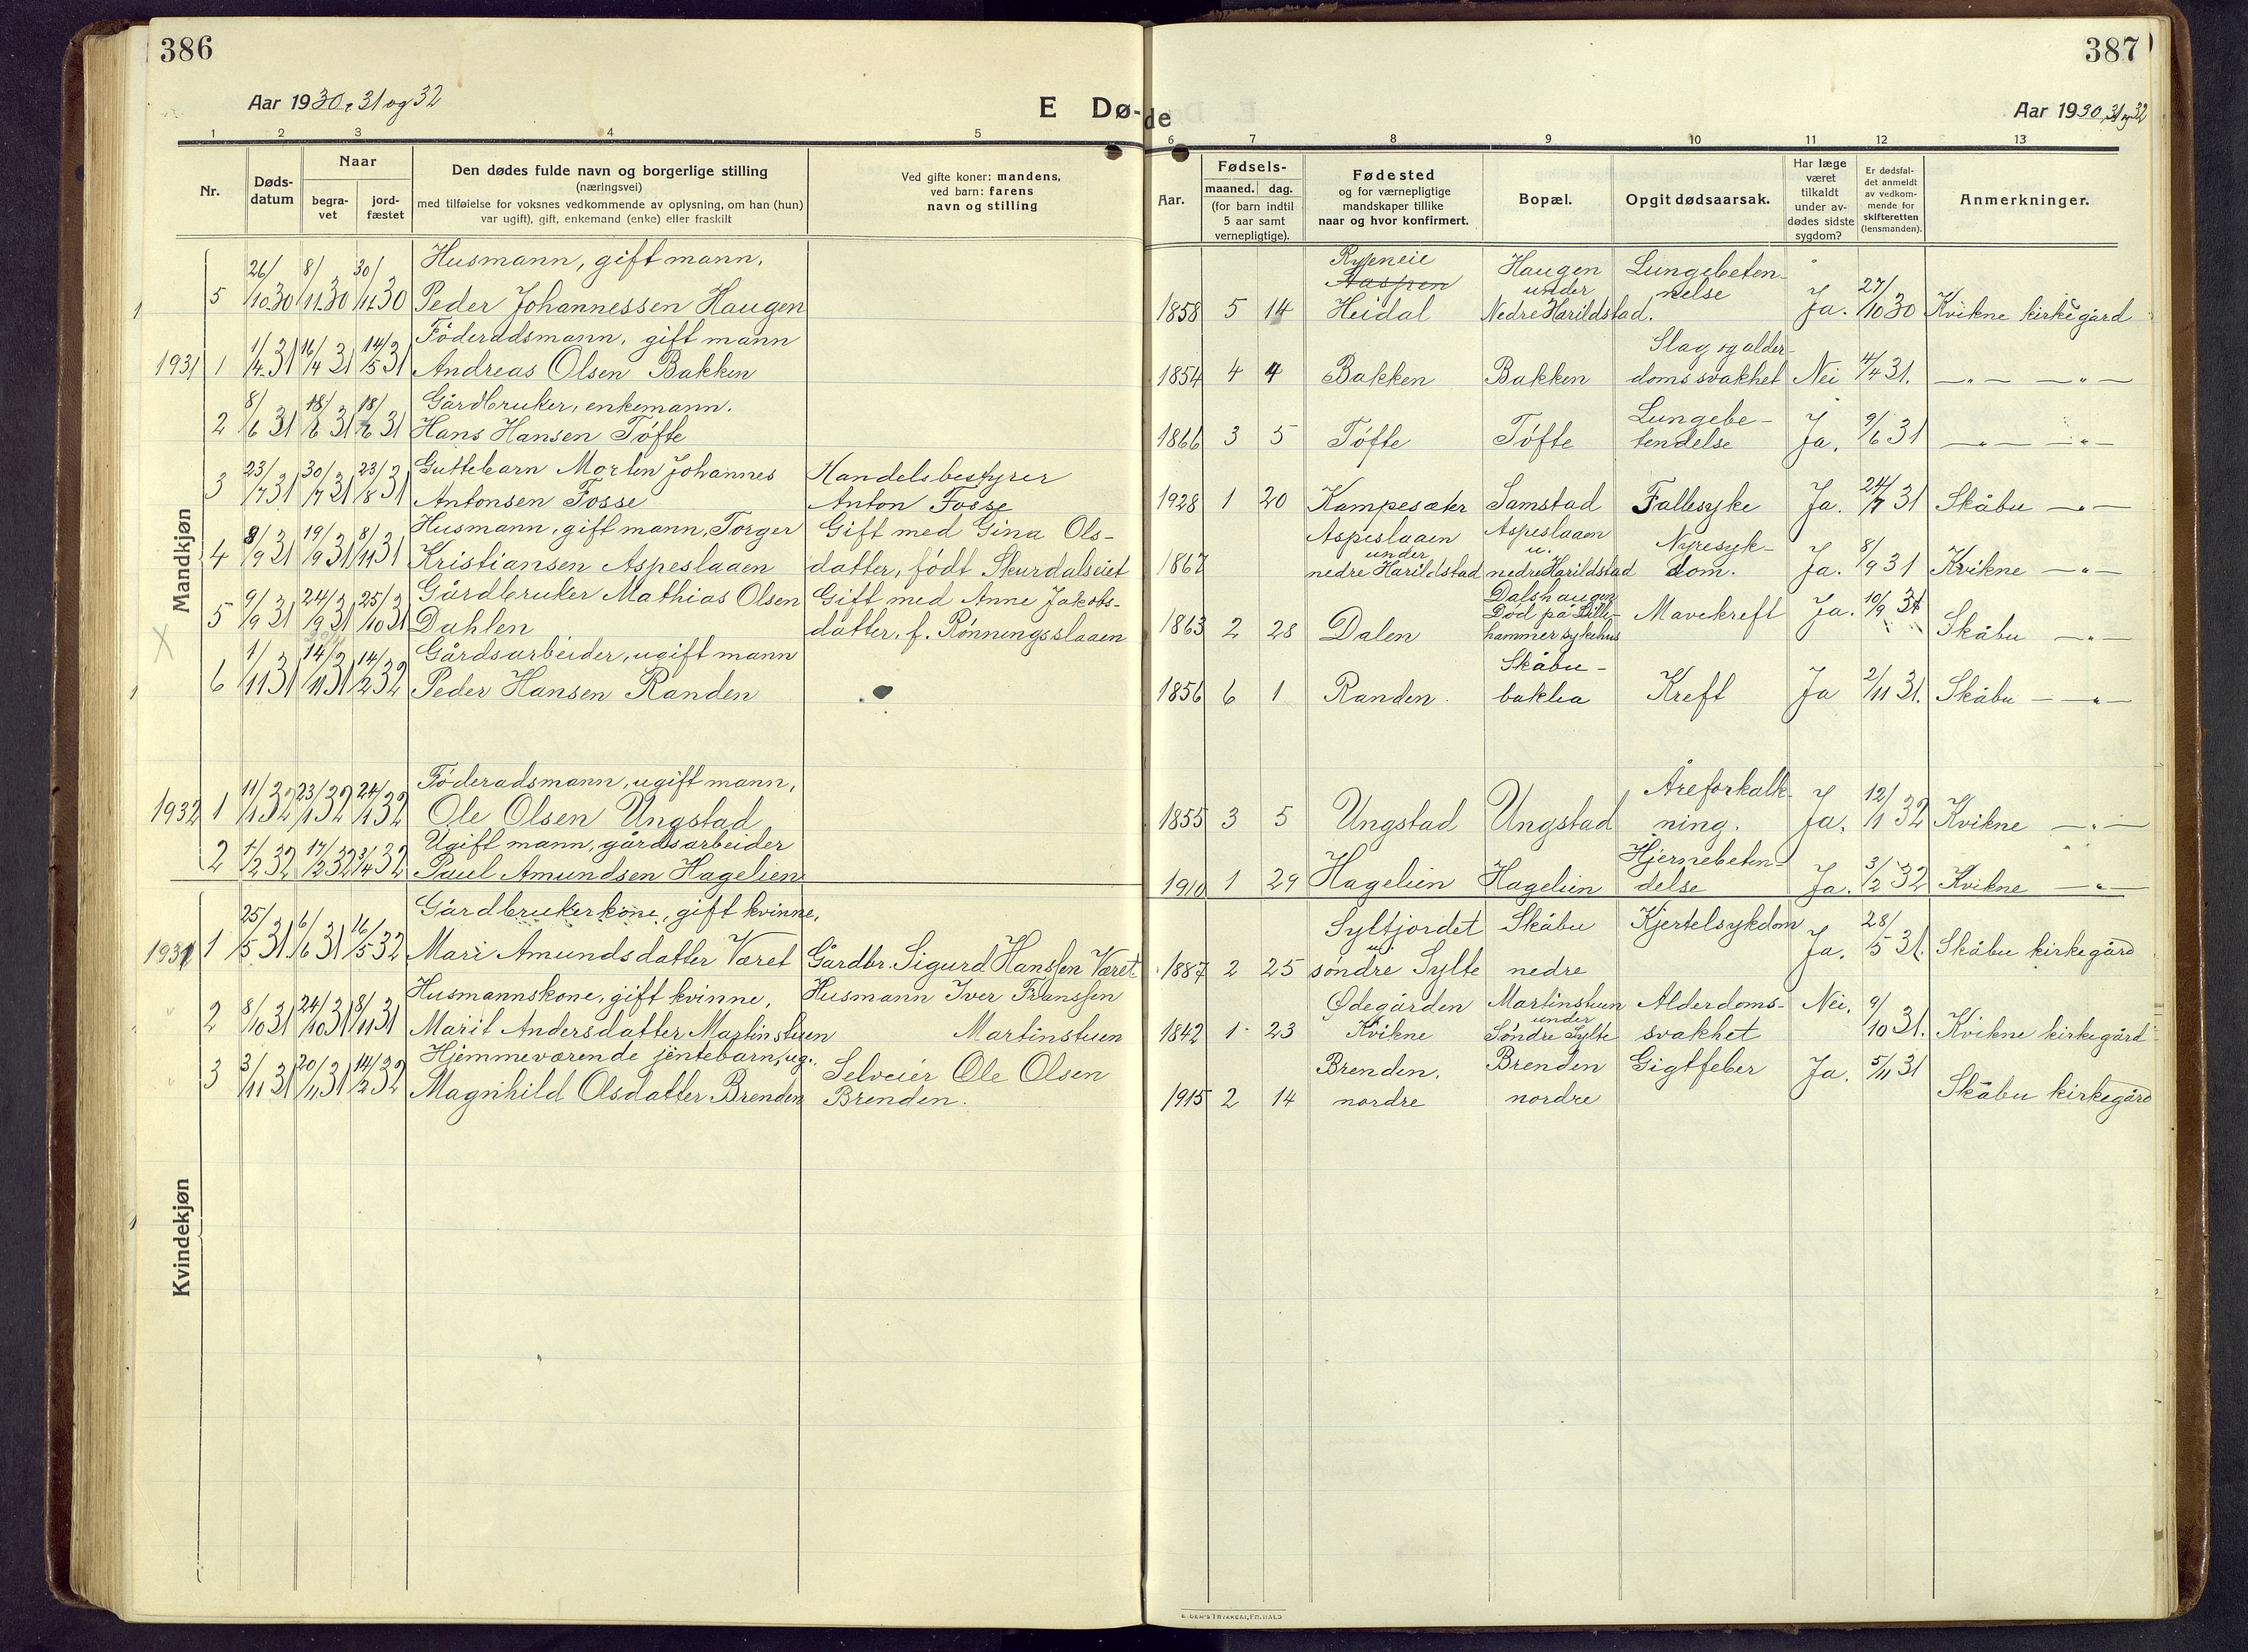 386
387
Aar 1930, 31 og 32
E Dø-
de
Aar 1930, 31 og 32
1 2 3 4 5 6 7 8 9 10 11 12 13
Nr.
Døds-
datum
Naar
begra-
vet
jord-
fæstet
Den dødes fulde navn og borgerlige stilling
(næringsvei)
med tilføielse for voksnes vedkommende av oplysning, om han (hun)
var ugift), gift, enkemand (enke) eller fraskilt
Ved gifte koner: mandens,
ved barn: farens
navn og stilling
Aar.
Fødsels-
maaned. dag.
(for barn indtil
5 aar samt
vernepligtige).
Fødested
og for værnepligtige
mandskaper tillike
naar og hvor konfirmert.
Bopæl.
Opgit dødsaarsak.
Har læge
været
tilkaldt
under av-
dødes sidste
sygdom?
Er dødsfal-
det anmeldt
av vedkom-
mende for
skifteretten
(lensmanden).
Anmerkninger.
Mandkjøn
Husmann, gift mann, Rypneie Haugen Lungebeten-
Aaspren under nelse
5 26/10 30 8/11 30 30/11 30 Peder Johannessen Haugen 1858 5 14 Heidal Nedre Harildstad. Ja. 27/10 30 Kvikne kirkegård
Föderadsmann, gift mann Slag og alder-
1931 1 1/4 31 16/4 31 14/5 31 Andreas Olsen Bakken 1854 4 4 Bakken Bakken doms svakhet Nei 4/4 31. — " — — " —
Gårdbruker, enkemann. Lungebe-
2 8/6 31 18/6 31 18/6 31 Hans Hansen Töfte 1866 3 5 Töfte Töfte tendelse Ja. 9/6 31 — " — — " —
Guttebarn Morten Johannes Handelsbestyrer
3 23/7 31 30/7 31 23/8 31 Antonsen Fosse Anton Fosse 1928 1 20 Kampesæter Samstad Fallesyke Ja. 24/7 31 Skåbu — " —
Husmann, gift mann, Torger Gift med Gina Ols- Aspeslaaen Aspeslaaen Nyresyk-
under u.
4 8/9 31 19/9 31 8/11 31 Kristiansen Aspeslaaen datter, født Skurdalseiet 1867 nedre Harildstad nedre Harildstad dom. Ja. 8/9 31 Kvikne — " —
Gårdbruker Mathias Olsen Gift med Anne Jakobs- Dalshaugen
Död på Lille-
5 9/9 31 24/9 31 25/10 31 Dahlen datter, f. Rönningsslaaen 1863 2 28 Dalen hammer sykehus Mavekreft Ja. 10/9 31 Skåbu — " —
Gårdsarbeider, ugift mann Skåbu-
6 1/11 31 14/11 31 14/2 32 Peder Hansen Randen 1856 6 1 Randen. baklia Kreft Ja 2/11 31. Skåbu — " —
Föderadsmann, ugift mann, Åreforkalk-
1932 1 11/1 32 23/1 32 24/1 32 Ole Olsen Ungstad 1855 3 5 Ungstad Ungstad ning. Ja. 12/1 32 Kvikne — " —
Ugift mann, gårdsarbeider Hjernebeten-
2 1/2 32 17/2 32 3/4 32 Paul Amundsen Hagelien 1910 1 29 Hagelien Hagelien delse Ja. 3/2 32 Kvikne — " —
Kvindekjøn
Gårdbrukerkone, gift kvinne, Syltjordet Skåbu Kjertelsykdom
u.
1931 1 25/5 31 6/6 31 16/5 32 Mari Amundsdatter Været Gårdbr. Sigurd Hanssen Været 1887 2 25 söndre Sylte nedre Ja. 28/5 31. Skåbu kirkegård
Husmannskone, gift kvinne, Husmann Iver Franssen Ødegården Martinstuen Alderdoms- Nei.
under
2 8/10 31 24/10 31 8/11 31 Marit Andersdatter Martinstuen Martinstuen 1842 1 23 Kvikne Söndre Sylte svakhet 9/10 31. Kvikne kirkegård
Hjemmeværende jentebarn, ug. Selveier Ole Olsen Brenden, Brenden Gigtfeber
3 3/11 31 20/11 31 14/2 32 Magnhild Olsdatter Brenden Brenden. 1915 2 14 nordre nordre Ja. 5/11 31 Skåbu kirkegård